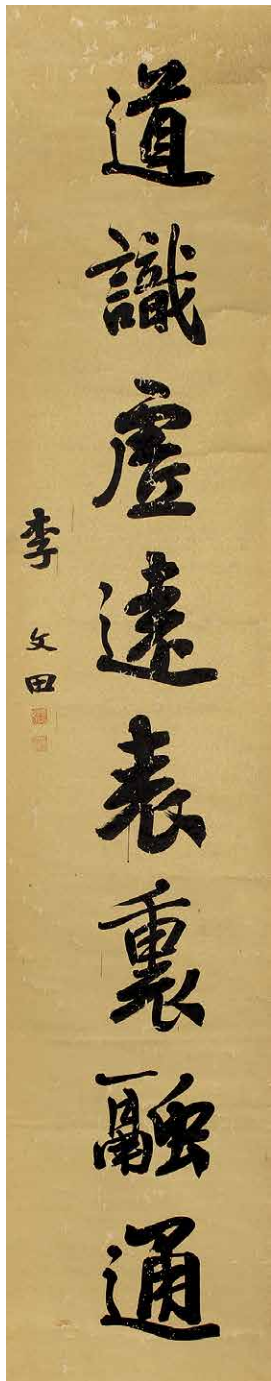 道識虛遠表裏融通
李文田